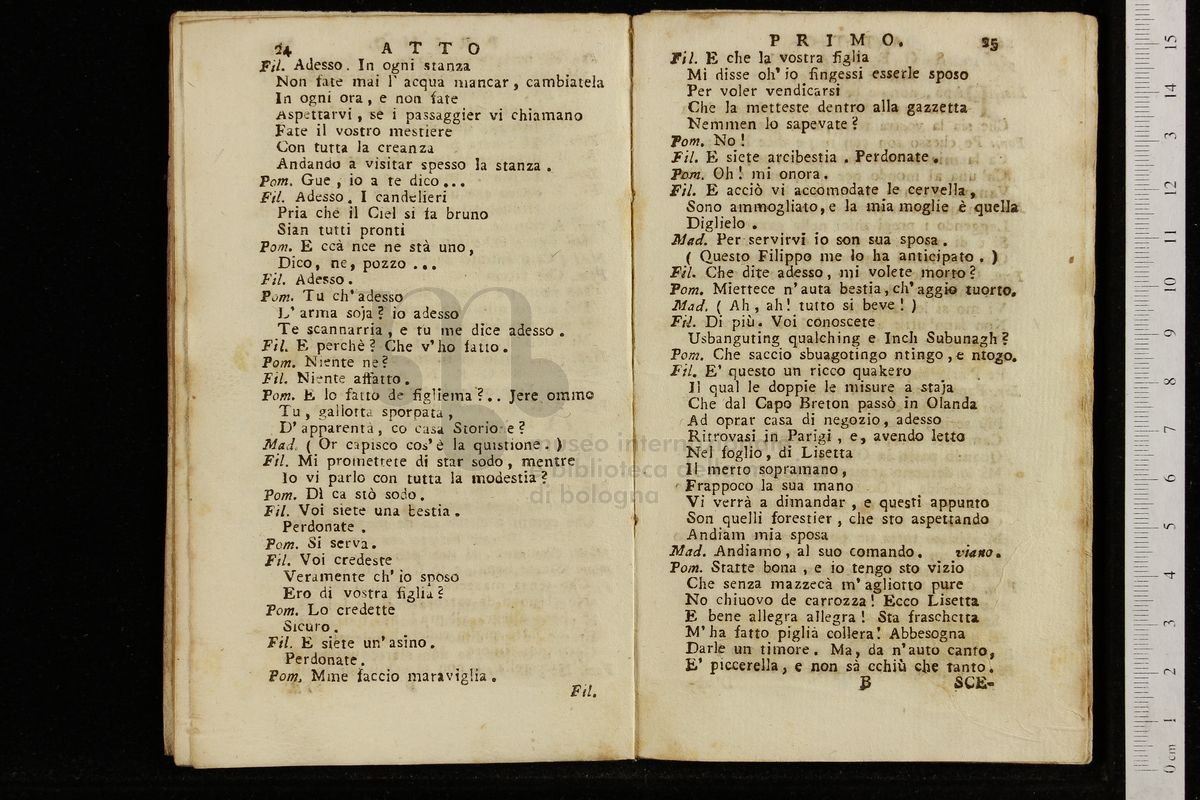 24 ATTO
Fil. Adesso. In ogni stanza
Non fate mai l' acqua mancar, cambiatela
In ogni ora, e non fate
Aspettarvi, se i passaggier vi chiamano
Fate il vostro mestiere
Con tutta la creanza
Andando a visitar spesso la stanza.
Pom. Gue, io a te dico...
Fil. Adesso. I candelieri
Pria che il Ciel si fa bruno
Sian tutti pronti
Pom. E ccà nce ne stà uno,
Dico, ne, pozzo ...
Fil. Adesso.
Pom. Tu ch' adesso
L' arma soja? io adesso
Te scannarria, e tu me dice adesso.
Fil. E perchè? Che v' ho fatto.
Pom. Niente ne?
Fil. Niente affatto.
Pom. E lo fatto de figliema?.. Jere ommo
Tu, gallotta sporpata,
D' apparenta, co casa Storione?
Mad. ( Or capisco cos' è la quistione. )
Fil. Mi promettete di star sodo, mentre
Io vi parlo con tutta la modestia?
Pom. Dì ca stò sodo.
Fil. Voi siete una bestia.
Perdonate.
Pom. Si serva.
Fil. Voi credeste
Veramente ch' io sposo
Ero di vostra figlia?
Pom. Lo credette
Sicuro.
Fil. E siete un' asino.
Perdonate.
Pom. Mme faccio maraviglia.
Fil.
PRIMO. 25
Fil. E che la vostra figlia
Mi disse oh' io fingessi esserle sposo
Per voler vendicarsi
Che la metteste dentro alla gazzetta
Nemmen lo sapevate?
Pom. No!
Fil. E siete arcibestia. Perdonate.
Pom. Oh! mi onora.
Fil. E acciò vi accomodate le cervella,
Sono ammogliato, e la mia moglie è quella
Diglielo.
Mad. Per servirvi io son sua sposa.
( Questo Filippo me lo ha anticipato. )
Fil. Che dite adesso, mi volete morto?
Pom. Miettece n' auta bestia, ch' aggio tuorto.
Mad. ( Ah, ah! tutto si beve! )
Fil. Di più. Voi conoscete
Usbanguting qualching e Inch Subunagh?
Pom. Che saccio sbuagotingo ntingo, e ntogo.
Fil. E' questo un ricco quakero
Il qual le doppie le misure a staja
Che dal Capo Breton passò in Olanda
Ad oprar casa di negozio, adesso
Ritrovasi in Parigi, e, avendo letto
Nel foglio, di Lisetta
Il merto sopramano,
Frappoco la sua mano
Vi verrà a dimandar, e questi appunto
Son quelli forestier, che sto aspettando
Andiam mia sposa
Mad. Andiamo, al suo comando. viano.
Pom. Statte bona, e io tengo sto vizio
Che senza mazzecà m' agliotto pure
No chiuovo de carrozza! Ecco Lisetta
E bene allegra allegra! Sta fraschetta
M' ha fatto piglià collera! Abbesogna
Darle un timore. Ma, da n' auto canto,
E' piccerella, e non sà cchiù che tanto.
B SCE-
museo internazionale
e biblioteca della musica
di bologna